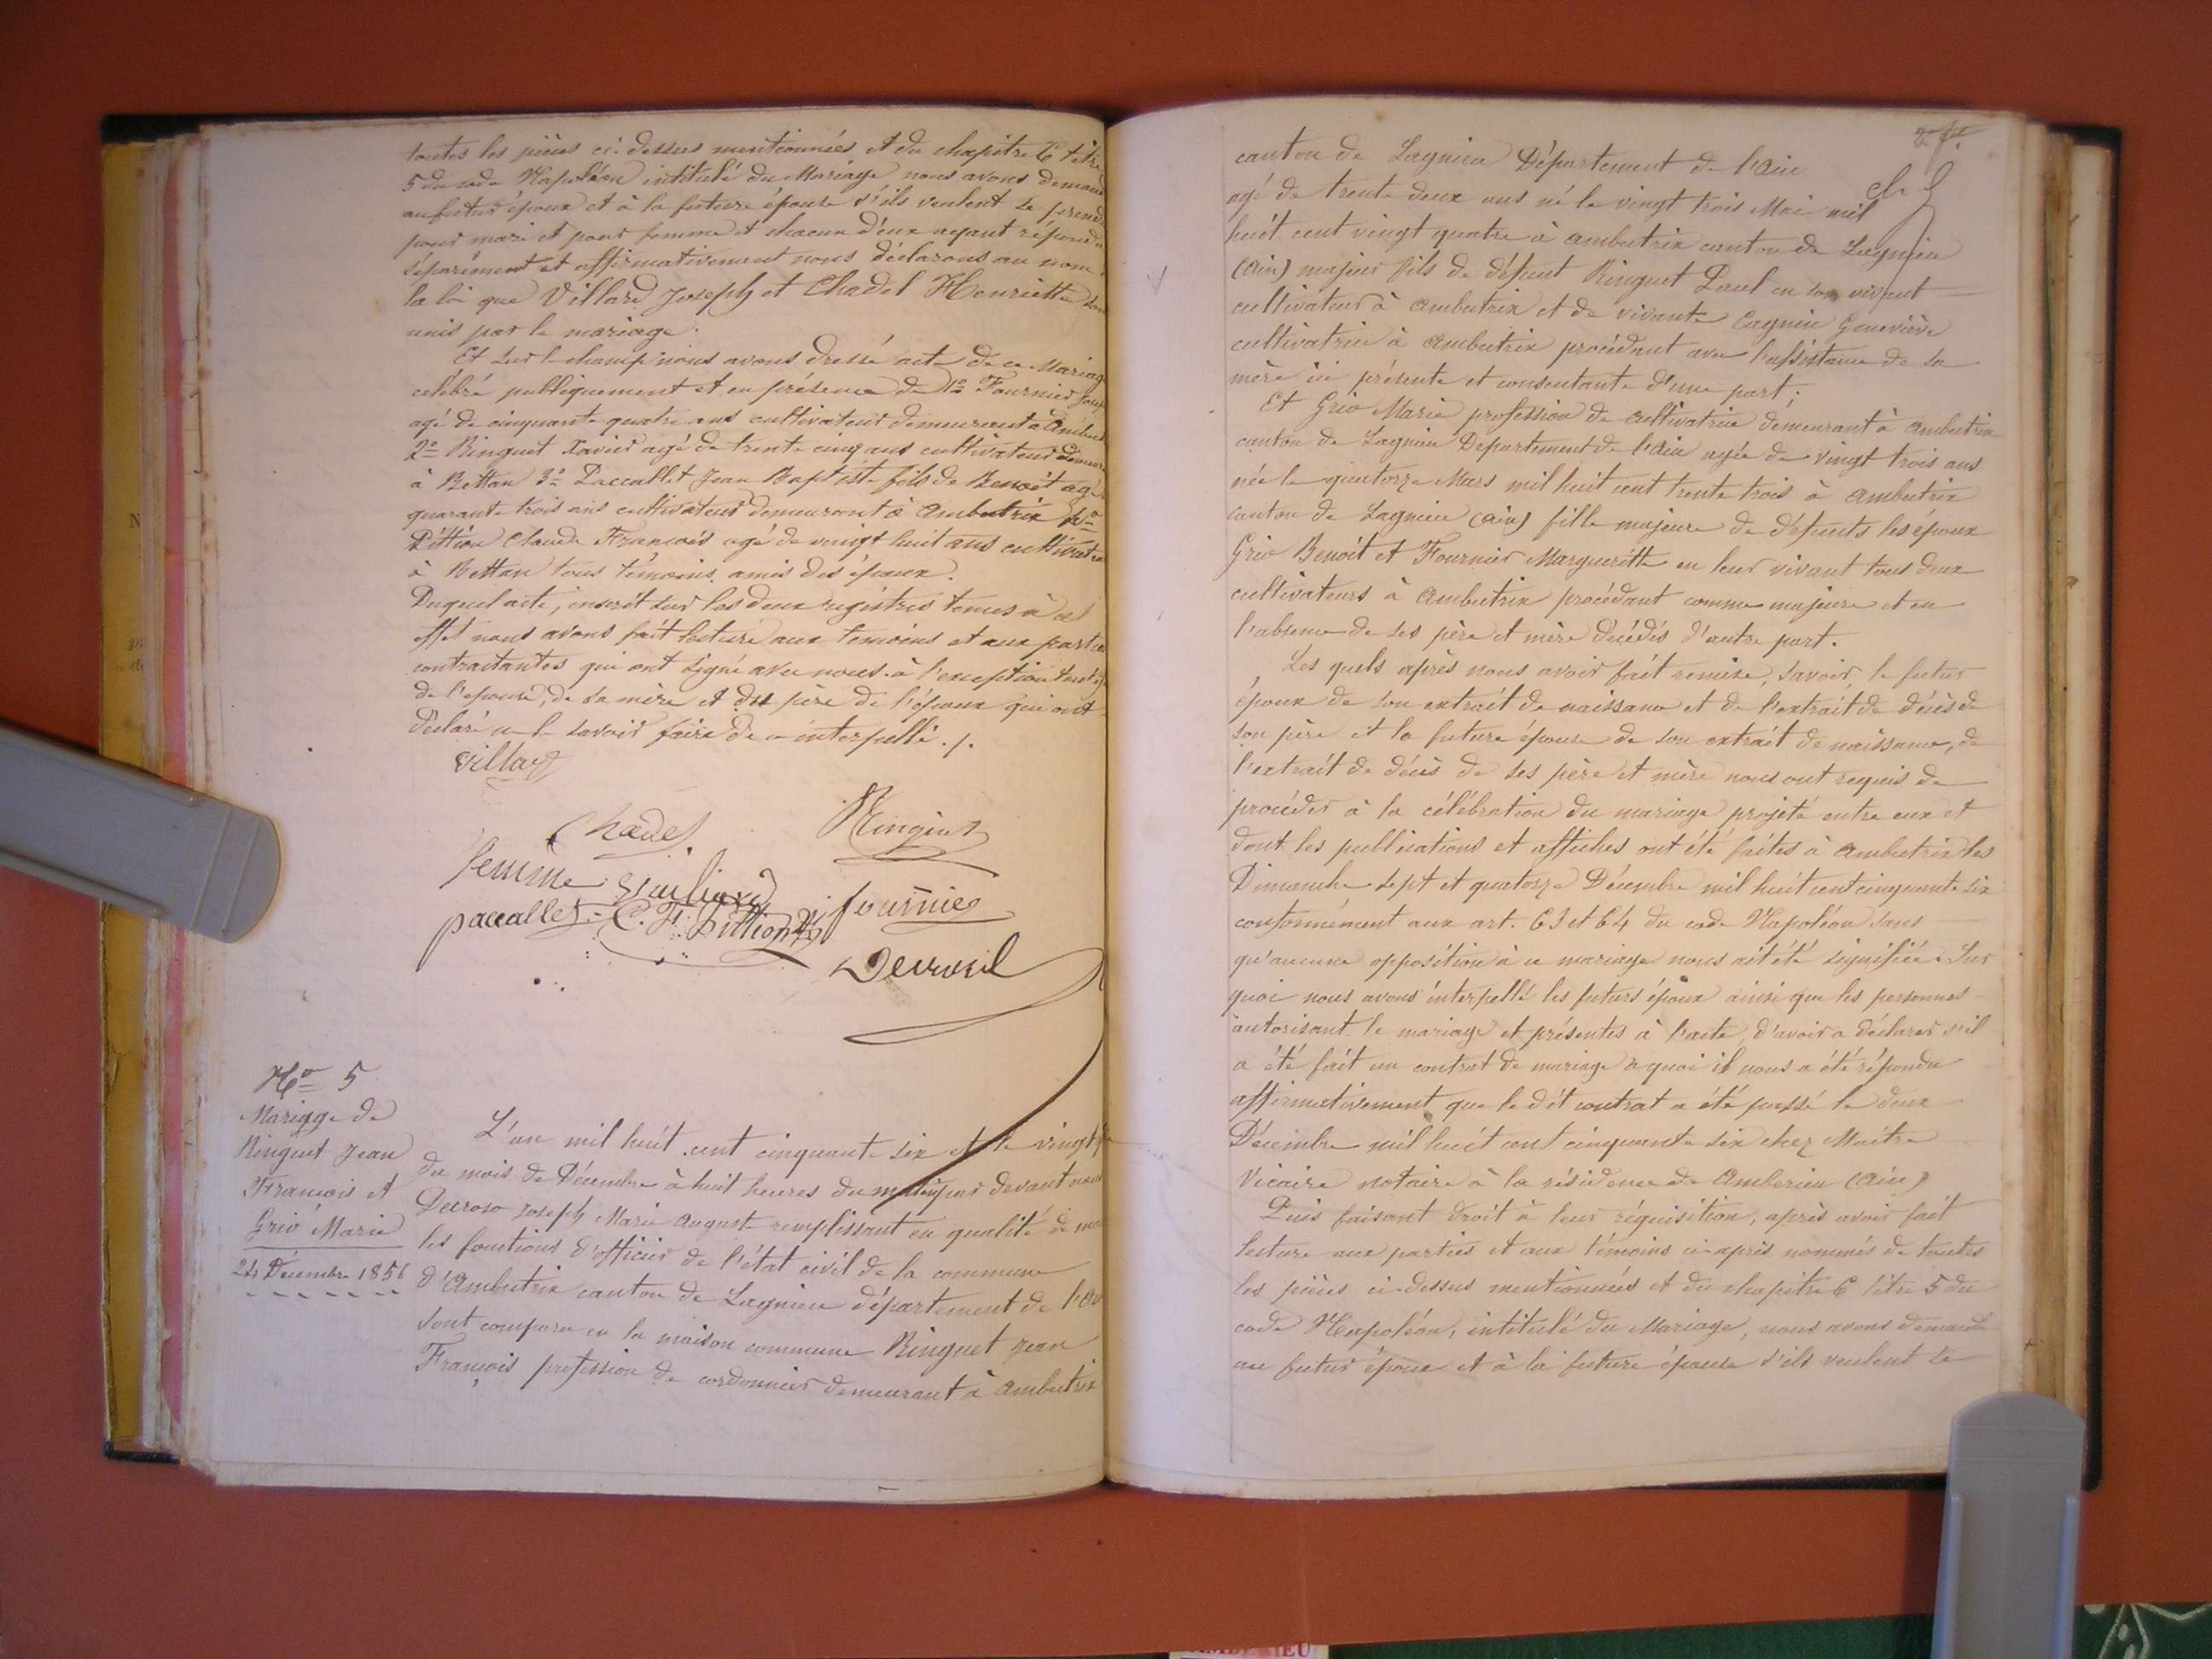 toutes les pièces ci-dessus mentionnées et du chapitre 6 titre
5 du code Napoléon intitulé du Mariage nous avons demand
au futur époux et à la future épouse s'ils veulent se prend
pour mari et pour femme et chacun d'eux ayant répondu
séparément et affirmativement nous déclarons au nom
la loi que Villard Joseph et Chadel Henriette son
unis par le mariage.
Et sur le champ nous avons dressé acte de ce Mariag
célébré publiquement et en présence de 1º Fournier Josep
agé de cinquante quatre ans cultivateur demeurant à Ambut
2º Ringuet Xavier agé de trente cinq ans cultivateur demeur
à Bettan 3º Paccallet Jean Baptiste fils de Benoît agé
quarante trois ans cultivateur demeurant à Ambutrix 4º
Dittion Claude François agé de vingt huit ans cultivateu
à Bettan tous témoins amis des époux.
Duquel acte, inscrit sur les deux registres tenus à cet
effet nous avons fait lecture aux temoins et aux parties
contractantes qui ont signé avec nous à l'exception
de l'epouse, de sa mère et du père de l'époux qui ont
déclaré ne le savoir faire de ce interpellé ./.
Villard
Chadel Ringuet
femme
paccallet C. F. Dittion fournier
Decroso
Nº 5
Mariage de
Ringuet Jean
François et
Grio Marie
24 Décembre 1856
L'an mil huit cent cinquante six et le vingt
du mois de Décembre à huit heures du matin par devant nous
Decroso Joseph Marie Auguste remplissant en qualité de ma
les fonctions d'officier de l'état civil de la commune
d'Ambutrix canton de Lagnieu département de l'Ain
sont comparu en la maison commune Ringuet Jean
François profession de cordonnier demeurant à Ambutrix
canton de Lagnieu Département de l'Ain
agé de trente deux ans né le vingt trois Mai mil
huit cent vingt quatre à Ambutrix canton de Lagnieu
(Ain) majeur fils de défunt Ringuet Paul en son vivant
cultivateur à Ambutrix et de vivante Cagnin Geneviève
cultivatrice à Ambutrix procédant avec l'assistance de sa
mère ici présente et consentante d'une part ;
Et Grio Marie profession de cultivatrice demeurant à Ambutrix
canton de Lagnieu Departement de l'Ain agée de vingt trois ans
née le quatorze Mars mil huit cent trente trois à Ambutrix
canton de Lagnieu (Ain) fille majeure de défunts les époux
Grio Benoît et Fournier Margueritte en leur vivant tous deux
cultivateurs à Ambutrix procédant comme majeure et en
l'absence de ses père et mère décédés d'autre part.
Les quels après nous avoir fait remise, savoir, le futur
époux de son extrait de naissance et de l'extrait de décès de
son père et la future épouse de son extrait de naissance, de
l'extrait de décès de ses père et mère nous ont requis de
procéder à la célébration du mariage projeté entre eux et
dont les publications et affiches ont été faites à Ambutrix les
Dimanche sept et quatorze Décembre mil huit cent cinquante six
conformément aux art. 63 et 64 du code Napoléon sans
qu'aucune opposition à ce mariage nous ait été signifiée. Sur
quoi nous avons interpellé les futurs époux ainsi que les personnes
autorisant le mariage et présentes à l'acte, d'avoir a déclarer s'il
a été fait un contrat de mariage a quoi il nous a été répondu
affirmativement que le dit contrat a été passé le deux
Décembre mil huit cent cinquante six chez Maitre
Vicaire notaire à la résidence de Amberieu (Ain)
Puis faisant droit à leur réquisition, après avoir fait
lecture aux parties et aux témoins ci-après nommés de toutes
les pièces ci-dessus mentionnées et du chapitre 6 titre 5 du
code Napoléon, intitulé du Mariage, nous avons demandé
au futur époux et à la future épouse s'ils veulent se